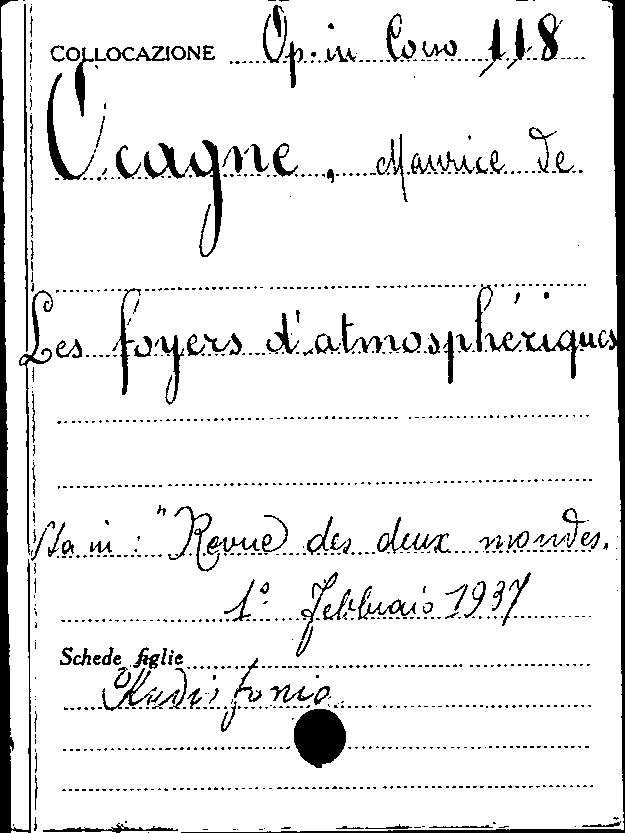 COLLOCAZIONE Op. in Corso 118
Ocagne, Maurice de
Les foyers d'atmosphériques
Sta in: "Revue des deux mondes.
1° Febbraio 1937
Schede figlie
Radiofonia